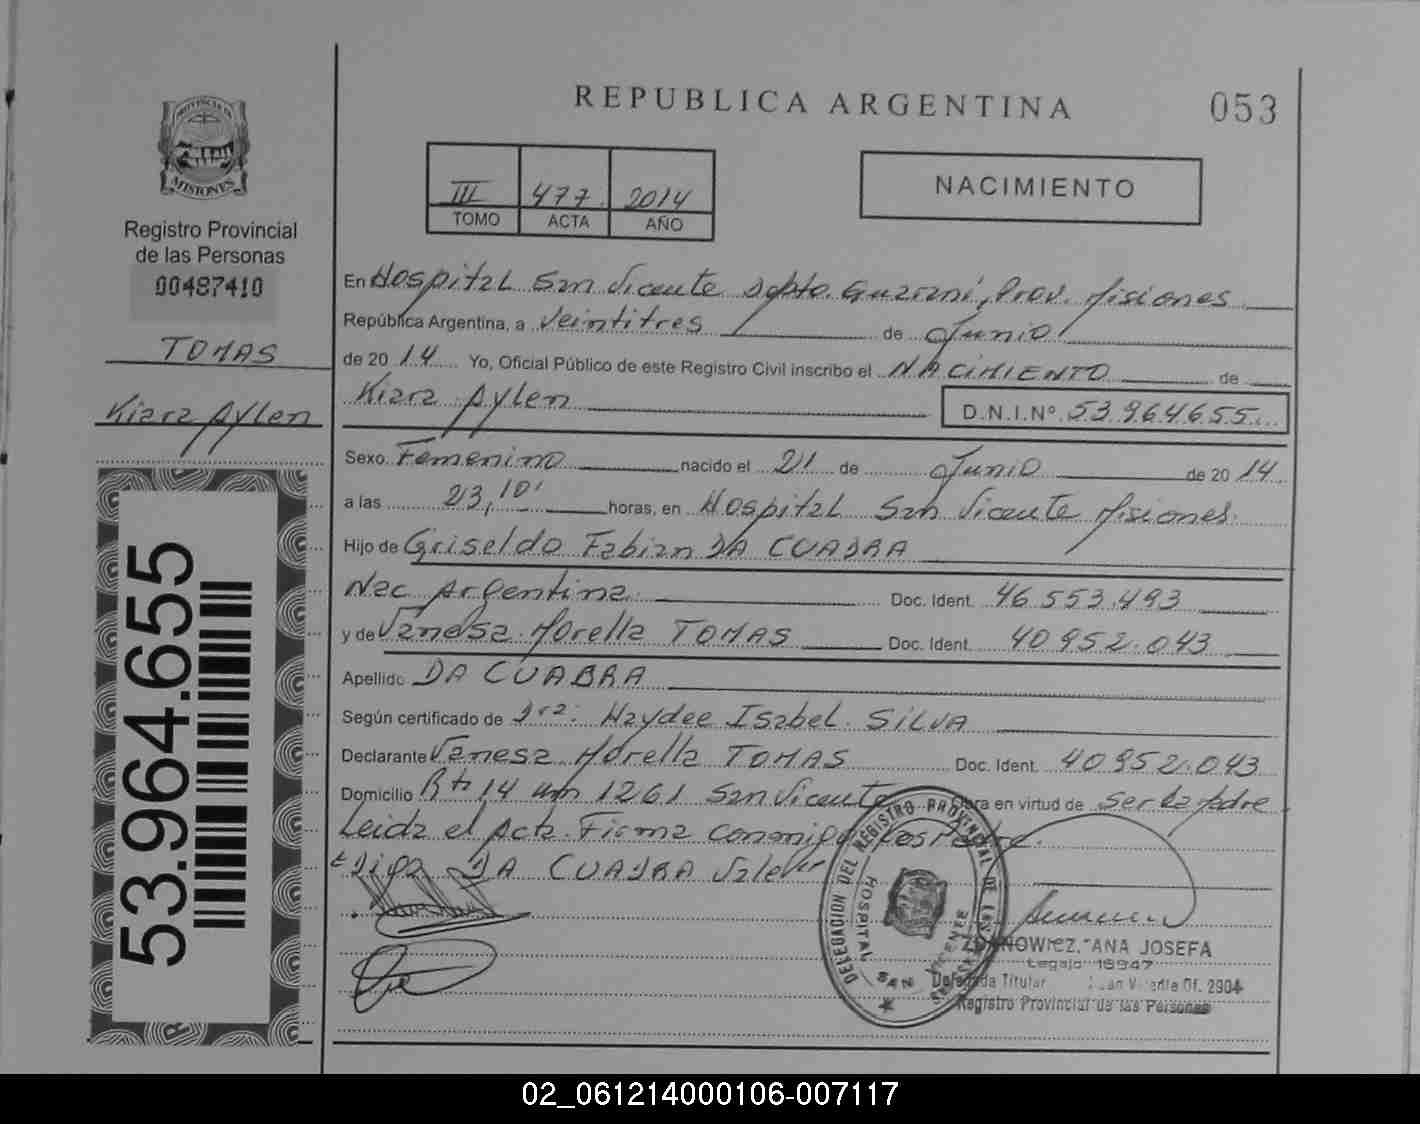 REPUBLICA ARGENTINA
053
PROVINCIA DE
MISIONES
Registro Provincial
de las Personas
00487410
TOMAS
Kiara Aylen
53.964.655
III 477 2014
TOMO ACTA AÑO
NACIMIENTO
En Hospital San Vicente Dpto. Guaraní, Prov. Misiones
República Argentina, a Veintitres de Junio
de 20 14 Yo, Oficial Público de este Registro Civil inscribo el NACIMIENTO de
Kiara Aylen D.N.I.Nº 53964655
Sexo Femenino nacido el 21 de Junio de 20 14
a las 23,10' horas, en Hospital San Vicente Misiones.
Hijo de Griseldo Fabian DA CUADRA
Nac Argentina. Doc. Ident. 46.553.493
y de Vanesa Morella TOMAS Doc. Ident. 40952.043
Apellido DA CUADRA
Según certificado de Dra: Haydee Isabel SILVA
Declarante Vanesa Morella TOMAS Doc. Ident. 40952.043
Domicilio Rta 14 km 1261 San Vicente Obra en virtud de ser la Madre
Leida el Acta. Firma conmigo los Padre.
Diga DA CUADRA Vale
DELEGACION DEL REGISTRO PROVINCIAL DE LAS PERSONAS
HOSPITAL SAN VICENTE
ZDANOWICZ, ANA JOSEFA
Legajo 16947
Delegada Titular San Vicente Of. 2904
Registro Provincial de las Personas
02_061214000106-007117